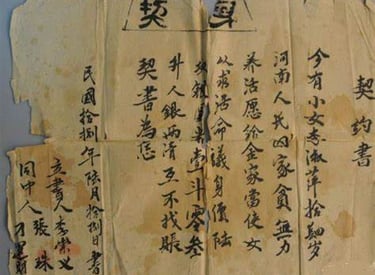 身契
契約書
今有小女李淑萍拾肆岁
河南人氏因家貧無力
养活愿给金家當使女
以求活命議身價陆
块圆壹斗零叁
升人銀两清互不找賬
契書為
民國拾捌年陆月拾捌日書
立書人李崇义
同中人張珠